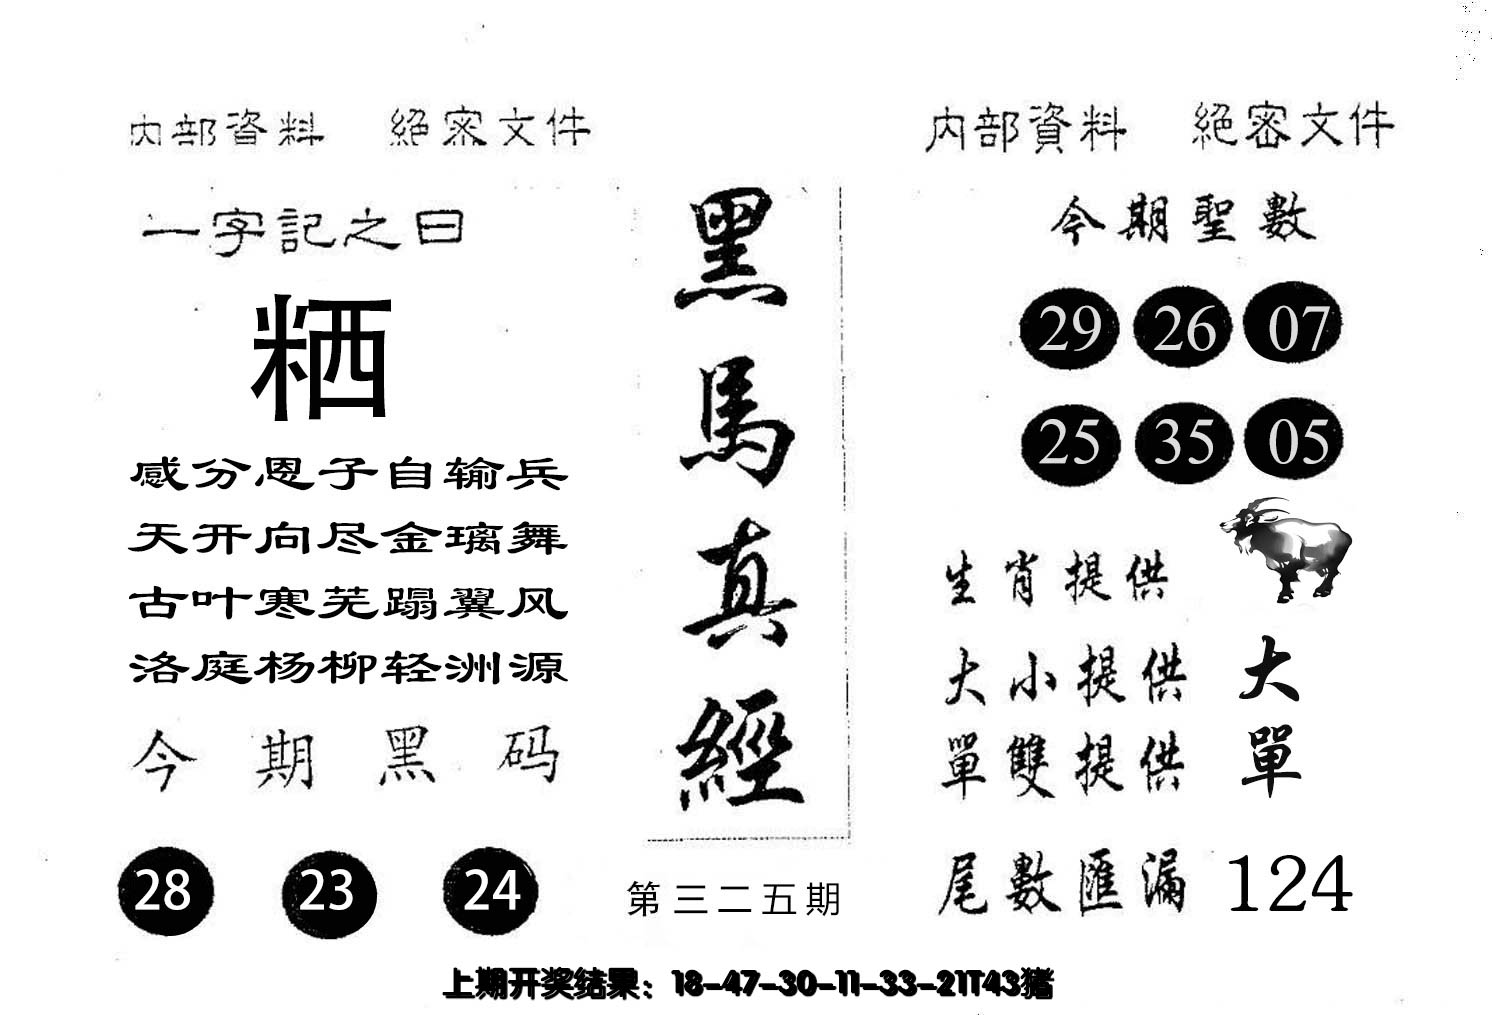 内部資料 絕密文件
一字記之曰
粞
感分恩子自输兵
天开向尽金璃舞
古叶寒芜蹋翼风
洛庭杨柳轻洲源
今期黑码
28 23 24
黑馬真經
第三二五期
内部資料 絕密文件
今期聖數
29 26 07
25 35 05
生肖提供
大小提供 大
單雙提供 單
尾數匯漏 124
上期开奖结果：18-47-30-11-33-21T43猪